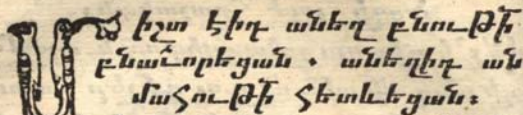 Միշտ էիդ անեղ բնութի
բնաւորեցան . անեղիդ ան
մահութի հետևեցան։